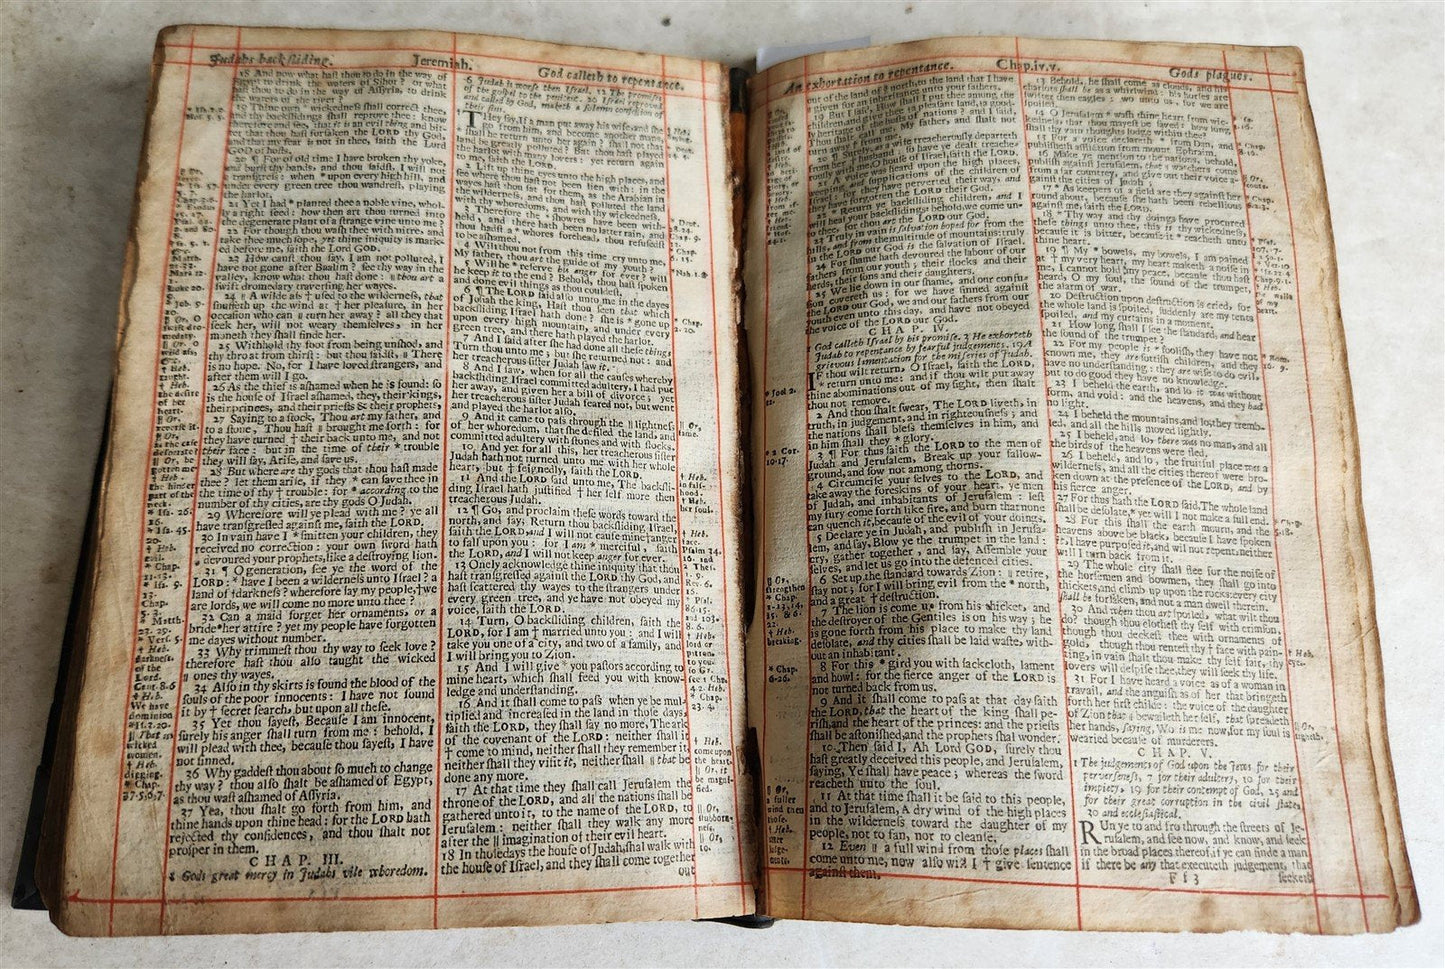 Judahs backsliding.
Jeremiah.
18 And now what hast thou to do in the way of
Egypt to drink the waters of Sihor? or what
hast thou to do in the way of Assyria, to drink
the waters of the river?
19 Thine own * wickedness shall correct thee,
and thy backslidings shall reprove thee: know
therefore and see, that it is an evil thing and bit-
ter that thou hast forsaken the LORD thy God,
and that my fear is not in thee, saith the Lord
GOD of hosts.
20 ¶ For of old time I have broken thy yoke,
and burst thy bands, and thou saidst, I will not
transgress: when * upon every high hill, and
under every green tree thou wandrest, playing
the harlot.
21 Yet I had * planted thee a noble vine, whol-
ly a right seed: how then art thou turned into
the degenerate plant of a strange vine unto me?
22 For though thou wash thee with nitre, and
take thee much sope, yet thine iniquity is mark-
ed before me, saith the Lord GOD.
23 How canst thou say, I am not polluted, I
have not gone after Baalim? see thy way in the
valley, know what thou hast done: thou art a
swift dromedary traversing her wayes.
24 ‖ A wilde ass † used to the wilderness, that
snuffeth up the wind at † her pleasure, in her
occasion who can ‖ turn her away? all they that
seek her, will not weary themselves, in her
moneth they shall finde her.
25 Withhold thy foot from being unshod, and
thy throat from thirst: but thou saidst, ‖ There
is no hope. No, for I have loved strangers, and
after them will I go.
26 As the thief is ashamed when he is found: so
is the house of Israel ashamed, they, their kings,
their princes, and their priests & their prophets,
27 Saying to a stock, Thou art my father, and
to a stone, Thou hast ‖ brought me forth: for
they have turned † their back unto me, and not
their face: but in the time of their * trouble
they will say, Arise, and save us.
28 But where are thy gods that thou hast made
thee? let them arise, if they * can save thee in
the time of thy † trouble: for * according to the
number of thy cities, are thy gods O Judah.
29 Wherefore will ye plead with me? ye all
have transgressed against me, saith the LORD.
30 In vain have I * smitten your children, they
received no correction: your own sword hath
* devoured your prophets, like a destroying lion.
31 ¶ O generation, see ye the word of the
LORD: * have I been a wilderness unto Israel? a
land of † darkness? wherefore say my people, † we
are lords, we will come no more unto thee?
32 Can a maid forget her ornaments, or a
bride * her attire? yet my people have forgotten
me dayes without number.
33 Why trimmest thou thy way to seek love?
therefore hast thou also taught the wicked
‖ ones thy wayes.
34 Also in thy skirts is found the blood of the
souls of the poor innocents: I have not found
it by † secret search, but upon all these.
35 Yet thou sayest, Because I am innocent,
surely his anger shall turn from me: behold, I
will plead with thee, because thou sayest, I have
not sinned.
36 Why gaddest thou about so much to change
thy way? thou also shalt be ashamed of Egypt,
as thou wast ashamed of Assyria.
37 Yea, thou shalt go forth from him, and
thine hands upon thine head: for the LORD hath
rejected thy confidences, and thou shalt not
prosper in them.
CHAP. III.
1 Gods great mercy in Judahs vile whoredom.
God calleth to repentance.
6 Judah is worse then Israel. 12 The promises
of the gospel to the penitent. 20 Israel reproved
and called by God, maketh a solemn confession of
their sins.
THey say, If a man put away his wife, and she
go from him, and become another mans,
shall he return unto her again? shall not that
land be greatly polluted? But thou hast played
the harlot with many lovers: yet return again
to me, saith the LORD.
2 Lift up thine eyes unto the high places, and
see where thou hast not been lien with: in the
wayes hast thou sat for them, as the Arabian in
the wilderness, and thou hast polluted the land
with thy whoredoms, and with thy wickedness.
3 Therefore the * showrs have been with-
held, and there hath been no latter rain, and
thou hadst a * whores forehead, thou refusedst
to be ashamed.
4 Wilt thou not from this time cry unto me,
My father, thou art the guide of my youth?
5 Will he * reserve his anger for ever? will
he keep it to the end? Behold, thou hast spoken
and done evil things as thou couldest.
6 ¶ The LORD said also unto me in the dayes
of Josiah the king, Hast thou seen that which
backsliding Israel hath done? she is * gone up
upon every high mountain, and under every
green tree, and there hath played the harlot.
7 And I said after she had done all these things
Turn thou unto me; but she returned not: and
her treacherous sister Judah saw it.
8 And I saw, when for all the causes whereby
backsliding Israel committed adultery, I had put
her away, and given her a bill of divorce; yet
her treacherous sister Judah feared not, but went
and played the harlot also.
9 And it came to pass through the ‖ lightness
of her whoredom, that she defiled the land, and
committed adultery with stones and with stocks.
10 And yet for all this, her treacherous sister
Judah hath not turned unto me with her whole
heart, but † feignedly, saith the LORD.
11 And the LORD said unto me, The backsli-
ding Israel hath justified † her self more then
treacherous Judah.
12 ¶ Go, and proclaim these words toward the
north, and say, Return thou backsliding Israel,
saith the LORD, and I will not cause mine anger
to fall upon you: for I am * merciful, saith
the LORD, and I will not keep anger for ever.
13 Onely acknowledge thine iniquity that thou
hast transgressed against the LORD thy God, and
hast scattered thy wayes to the strangers under
every green tree, and ye have not obeyed my
voice, saith the LORD.
14 Turn, O backsliding children, saith the
LORD, for I am † married unto you: and I will
take you one of a city, and two of a family, and
I will bring you to Zion.
15 And I will give * you pastors according to
mine heart, which shall feed you with know-
ledge and understanding.
16 And it shall come to pass when ye be mul-
tiplied and increased in the land in those days,
saith the LORD, they shall say no more, The ark
of the covenant of the LORD: neither shall it
† come to mind, neither shall they remember it,
neither shall they visit it, neither shall ‖ that be
done any more.
17 At that time they shall call Jerusalem the
throne of the LORD, and all the nations shall be
gathered unto it, to the name of the LORD, to
Jerusalem: neither shall they walk any more
after the ‖ imagination of their evil heart.
18 In those days the house of Judah shall walk with
the house of Israel, and they shall come together
out
An exhortation to repentance.
Chap. iv. v.
out of the land of * north, to the land that I have
‖ given for an inheritance unto your fathers.
19 But I said, How shall I put thee among the
children, and give thee a † pleasant land, a good-
ly heritage of the hosts of nations? and I said,
Thou shalt call me, My father, and shalt not
turn away † from me.
20 ¶ Surely, as a wife treacherously departeth
from her † husband, so have ye dealt treache-
rously with me, O house of Israel, saith the LORD.
21 A voice was heard upon the high places,
weeping, and supplications of the children of
Israel: for they have perverted their way, and
they have forgotten the LORD their God.
22 * Return ye backsliding children, and I
will heal your backslidings: behold, we come un-
to thee, for thou art the LORD our God.
23 Truly in vain is salvation hoped for from the
hills, and from the multitude of mountains: truly
in the LORD our God is the salvation of Israel.
24 For shame hath devoured the labour of our
fathers from our youth; their flocks and their
herds, their sons and their daughters.
25 We lie down in our shame, and our confu-
sion covereth us: for we have sinned against
the LORD our God, we and our fathers from our
youth even unto this day, and have not obeyed
the voice of the LORD our God.
CHAP. IV.
1 God calleth Israel by his promise. 3 He exhorteth
Judah to repentance by fearful judgements. 19 A
grievous lamentation for the miseries of Judah.
IF thou wilt return, O Israel, saith the LORD,
* return unto me: and if thou wilt put away
thine abominations out of my sight, then shalt
thou not remove.
2 And thou shalt swear, The LORD liveth, in
truth, in judgement, and in righteousness; and
the nations shall bless themselves in him, and
in him shall they * glory.
3 ¶ For thus saith the LORD to the men of
Judah and Jerusalem, Break up your fallow-
ground, and sow not among thorns.
4 Circumcise your selves to the LORD, and
take away the foreskins of your heart, ye men
of Judah, and inhabitants of Jerusalem: lest
my fury come forth like fire, and burn that none
can quench it, because of the evil of your doings.
5 Declare ye in Judah, and publish in Jerusa-
lem, and say, Blow ye the trumpet in the land:
cry, gather together, and say, Assemble your
selves, and let us go into the defenced cities.
6 Set up the standard towards Zion: ‖ retire,
stay not; for I will bring evil from the * north,
and a great † destruction.
7 The lion is come up from his thicket, and
the destroyer of the Gentiles is on his way; he
is gone forth from his place to make thy land
desolate, and thy cities shall be laid waste, with-
out an inhabitant.
8 For this * gird you with sackcloth, lament
and howl: for the fierce anger of the LORD is
not turned back from us.
9 And it shall come to pass at that day saith
the LORD, that the heart of the king shall pe-
rish, and the heart of the princes: and the priests
shall be astonished, and the prophets shall wonder.
10 Then said I, Ah Lord GOD, surely thou
hast greatly deceived this people, and Jerusalem,
saying, Ye shall have peace; whereas the sword
reacheth unto the soul.
11 At that time shall it be said to this people,
and to Jerusalem, A dry wind of the high places
in the wilderness toward the daughter of my
people, not to fan, nor to cleanse,
12 Even ‖ a full wind from those places shall
come unto me, now also will I † give sentence
against them.
Gods plagues.
13 Behold, he shall come as clouds, and his
chariots shall be as a whirlwind: his horses are
swifter then eagles: wo unto us, for we are
spoiled.
14 O Jerusalem * wash thine heart from wic-
kedness, that thou mayest be saved: how long
shall thy vain thoughts lodge within thee?
15 For a voice declareth * from Dan, and
publisheth affliction from mount Ephraim.
16 Make ye mention to the nations, behold,
publish against Jerusalem, that watchers come
from a far country, and give out their voice a-
gainst the cities of Judah.
17 * As keepers of a field are they against her
round about, because she hath been rebellious
against me, saith the LORD.
18 * Thy way and thy doings have procured
these things unto thee, this is thy wickedness,
because it is bitter, because it * reacheth unto
thine heart.
19 ¶ My * bowels, my bowels, I am pained
at † my very heart, my heart maketh a noise in
me, I cannot hold my peace, because thou hast
heard, O my soul, the sound of the trumpet,
the alarm of war.
20 Destruction upon destruction is cried, for
the whole land is spoiled, suddenly are my tents
spoiled, and my curtains in a moment.
21 How long shall I see the standard, and hear
the sound of the trumpet?
22 For my people is * foolish, they have not
known me, they are sottish children, and they
have no understanding: they are wise to do evil,
but to do good they have no knowledge.
23 I beheld the earth, and lo, it was without
form, and void: and the heavens, and they had
no light.
24 I beheld the mountains, and lo, they tremb-
led, and all the hills moved lightly.
25 I beheld, and lo, there was no man, and all
the birds of the heavens were fled.
26 I beheld, and lo, the fruitful place was a
wilderness, and all the cities thereof were bro-
ken down at the presence of the LORD, and by
his fierce anger.
27 For thus hath the LORD said, The whole land
shall be desolate, * yet will I not make a full end.
28 For this shall the earth mourn, and the
heavens above be black: because I have spoken
it, I have purposed it, and will not repent, neither
will I turn back from it.
29 The whole city shall flee for the noise of
the horsemen and bowmen, they shall go into
thickets, and climb up upon the rocks: every city
shall be forsaken, and not a man dwell therein.
30 And when thou art spoiled, what wilt thou
do? though thou clothest thy self with crimson,
though thou deckest thee with ornaments of
gold, though thou rentest thy † face with pain-
ting, in vain shalt thou make thy self fair, thy
lovers will despise thee, they will seek thy life.
31 For I have heard a voice as of a woman in
travail, and the anguish as of her that bringeth
forth her first childe: the voice of the daughter
of Zion that bewaileth her self, that spreadeth
her hands, saying, Wo is me now, for my soul is
wearied because of murderers.
CHAP. V.
1 The judgements of God upon the Jews for their
perverseness, 7 for their adultery, 10 for their
impiety, 19 for their contempt of God, 25 and
for their great corruption in the civil state,
30 and ecclesiastical.
RUn ye to and fro through the streets of Je-
rusalem, and see now, and know, and seek
in the broad places thereof, if ye can finde a man
if there be any that executeth judgement, that
Ff3
seeketh